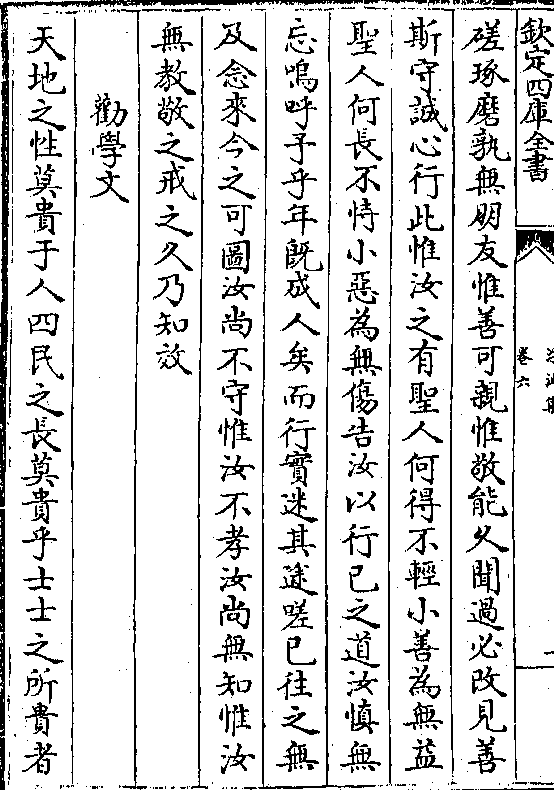 欽定四庫全書
卷六
磋琢磨孰無朋友惟善可親惟敬能久聞過必改見善
斯守誠心行此惟汝之有聖人何得不輕小善為無益
聖人何長不恃小惡為無傷告汝以行已之道汝慎無
忘嗚呼予乎年既成人矣而行實迷其途嗟已往之無
及念來今之可圖汝尚不守惟汝不孝汝尚無知惟汝
無教敬之戒之久乃知效
勸學文
天地之性莫貴于人四民之長莫貴乎士士之所貴者